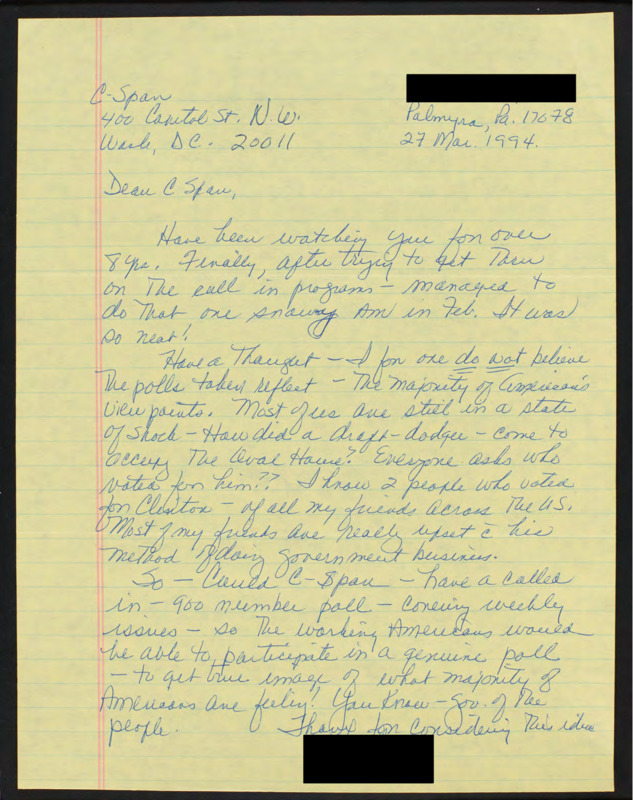 C-Span
400 Capitol St. N.W.
Wash, D.C. 20011
Palmyra, Pa. 17078
27 Mar. 1994.
Dear C Span,
Have been watching you for over
8 yrs. Finally, after trying to get Thru
on The call in programs – managed to
do That one snowy Am in Feb. It was
so neat!
Have a Thought – I for one do not believe
The polls taken reflect – The majority of American's
view points. Most of us are still in a state
of Shock – How did a draft-dodger – come to
occupy The Oval House? Everyone asks who
voted for him?? I know 2 people who voted
for Clinton – of all my friends across The U.S.
Most of my friends are really upset c̄ his
method of doing government business.
So – Could C-Span – have a called
in – 900 number poll – covering weekly
issues – so The working Americans would
be able to participate in a genuine poll
– to get true image of what majority of
Americans are feeling! You Know – Gov. of The
people.
Thanks for considering This idea